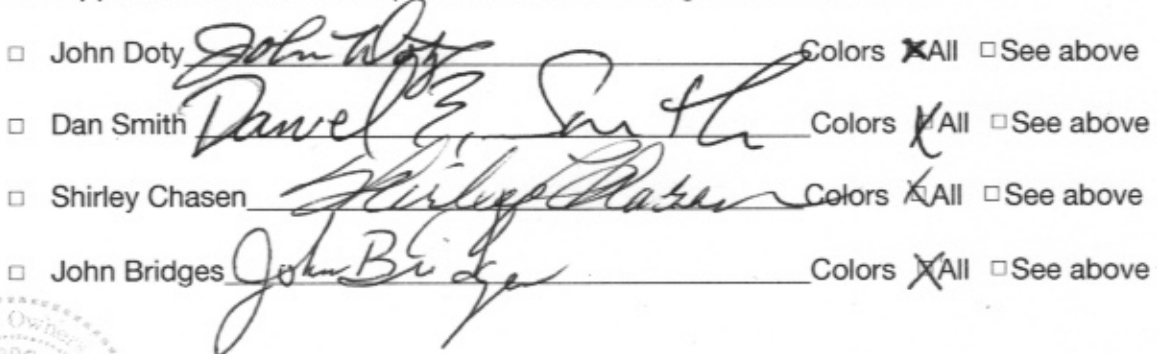 □ John Doty John Doty Colors ☒ All □ See above
□ Dan Smith Daniel E. Smith Colors ☒ All □ See above
□ Shirley Chasen Shirley Chasen Colors ☒ All □ See above
□ John Bridges John Bridges Colors ☒ All □ See above
Owners